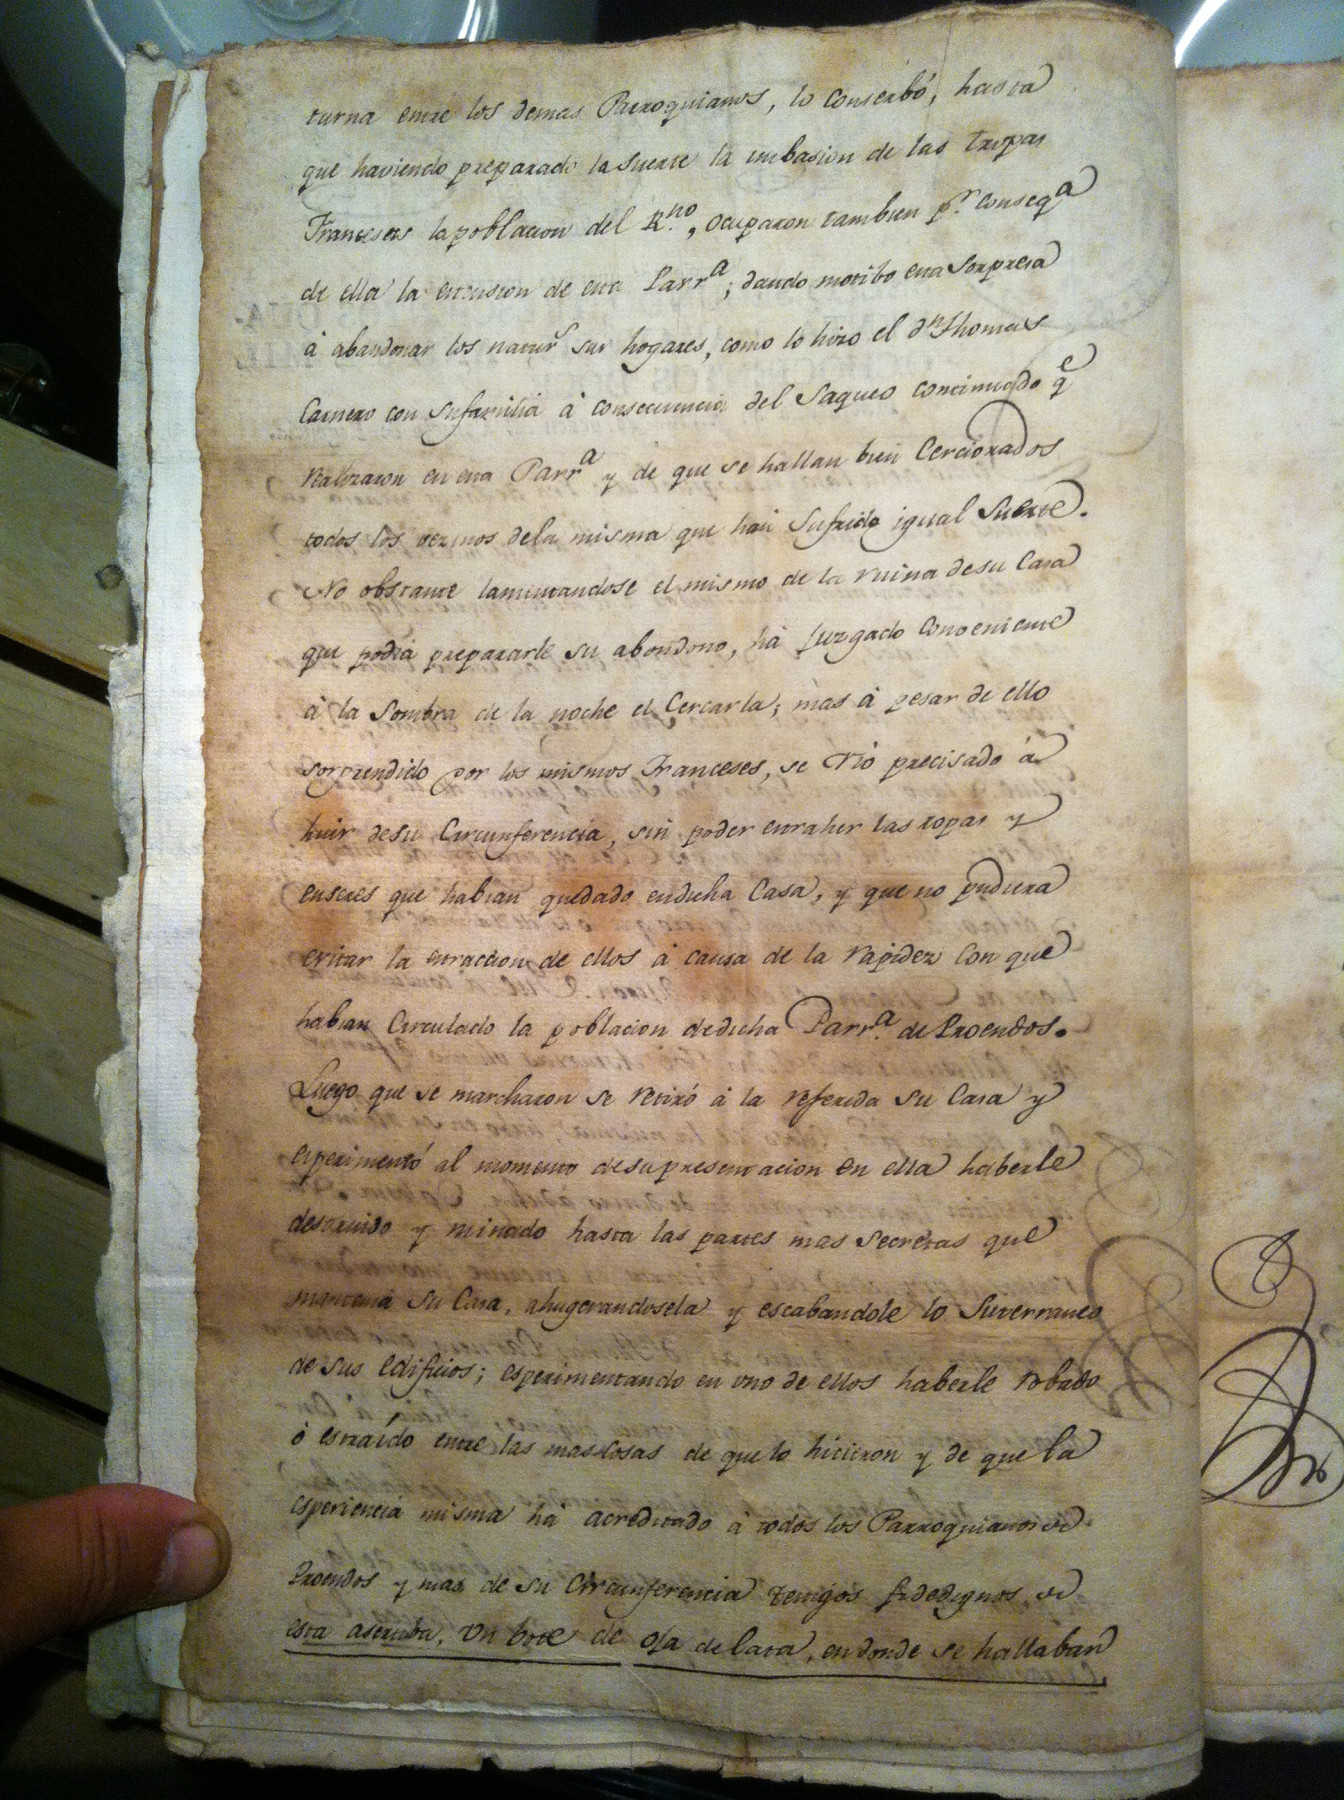 turna entre los demas Parroquianos, lo conserbó, hasta
que haviendo preparado la suerte la imbasion de las tropas
Franceses la poblacion del R.no, ocuparon tambien p.r conseq.a
de ella la estension de esta Parr.a; dando motibo esta sorpresa
à abandonar los natur.s sus hogares, como lo hizo el d.n Thomas
Carnero con su familia à consecuencia del Saqueo continuado q.e
realizaron en esta Parr.a y de que se hallan bien Cercionados
todos los vezinos dela misma que han Sufrido igual Suerte.
No obstante lamentandose el mismo de la ruina desu Casa
que podia prepararle su abondono, hà juzgado conveniente
à la Sombra de la noche el Cercarla; mas à pesar de ello
sorprendido por los mismos Franceses, se viò precisado à
huir desu Circunferencia, sin poder entraher las ropas y
enseres que habian quedado endicha Casa, y que no pudiera
evitar la entraccion de ellos à causa de la rapidez con que
habian Circulado la poblacion dedicha Parr.a de Proendos.
Luego que se marcharon se retiró à la referida su Casa y
esperimentó al momento desupresentacion en ella haberle
destruido y minado hasta las partes mas secretas que
mantenia su Casa, ahugerandosela y escabandole lo Suterraneo
de sus edificios; esperimentando en uno de ellos haberle robado
ò estraído entre las mas cosas de que lo hicieron y de que la
esperiencia misma hà acreditado à todos los Parroquianos de
Proendos y mas de su Circunferencia testigos fidedignos de
esta , un bote de oja de lata, en donde se hallaban